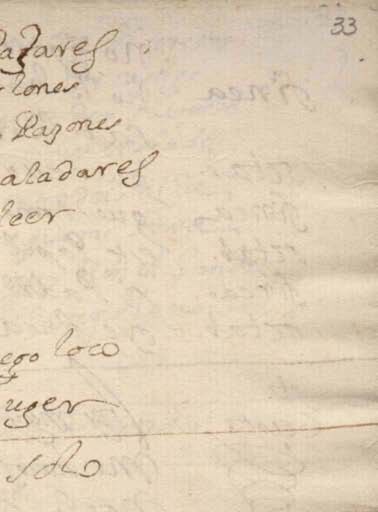 33
azares
lones
Razones
aladares
leer
ego loco
uger
solo